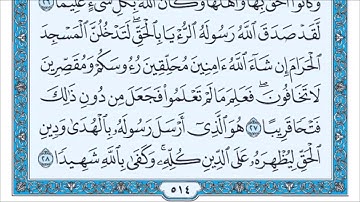 وَكَانُوٓا۟ أَحَقَّ بِهَا وَأَهْلَهَا وَكَانَ ٱللَّهُ بِكُلِّ شَىْءٍ عَلِيمًا ٢٦
لَّقَدْ صَدَقَ ٱللَّهُ رَسُولَهُ ٱلرُّءْيَا بِٱلْحَقِّ ۖ لَتَدْخُلُنَّ ٱلْمَسْجِدَ
ٱلْحَرَامَ إِن شَآءَ ٱللَّهُ ءَامِنِينَ مُحَلِّقِينَ رُءُوسَكُمْ وَمُقَصِّرِينَ
لَا تَخَافُونَ ۖ فَعَلِمَ مَا لَمْ تَعْلَمُوا۟ فَجَعَلَ مِن دُونِ ذَٰلِكَ
فَتْحًا قَرِيبًا ٢٧ هُوَ ٱلَّذِىٓ أَرْسَلَ رَسُولَهُۥ بِٱلْهُدَىٰ وَدِينِ
ٱلْحَقِّ لِيُظْهِرَهُۥ عَلَى ٱلدِّينِ كُلِّهِۦ ۚ وَكَفَىٰ بِٱللَّهِ شَهِيدًا ٢٨
٥١٤